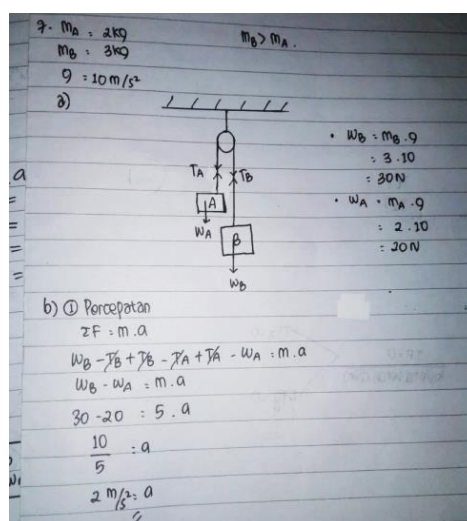 7. mA = 2kg
mB : 3kg
mB > mA.
g : 10 m/s²
a)
• WB = mB . g
: 3 . 10
: 30N
• WA = mA . g
: 2 . 10
: 20N
TA
TB
A
WA
B
WB
a
=
=
=
=
b) ① Percepatan
ΣF = m . a
WB - TB + TB - TA + TA - WA = m . a
WB - WA = m . a
30 - 20 : 5 . a
10
5
: a
2 m/s² = a